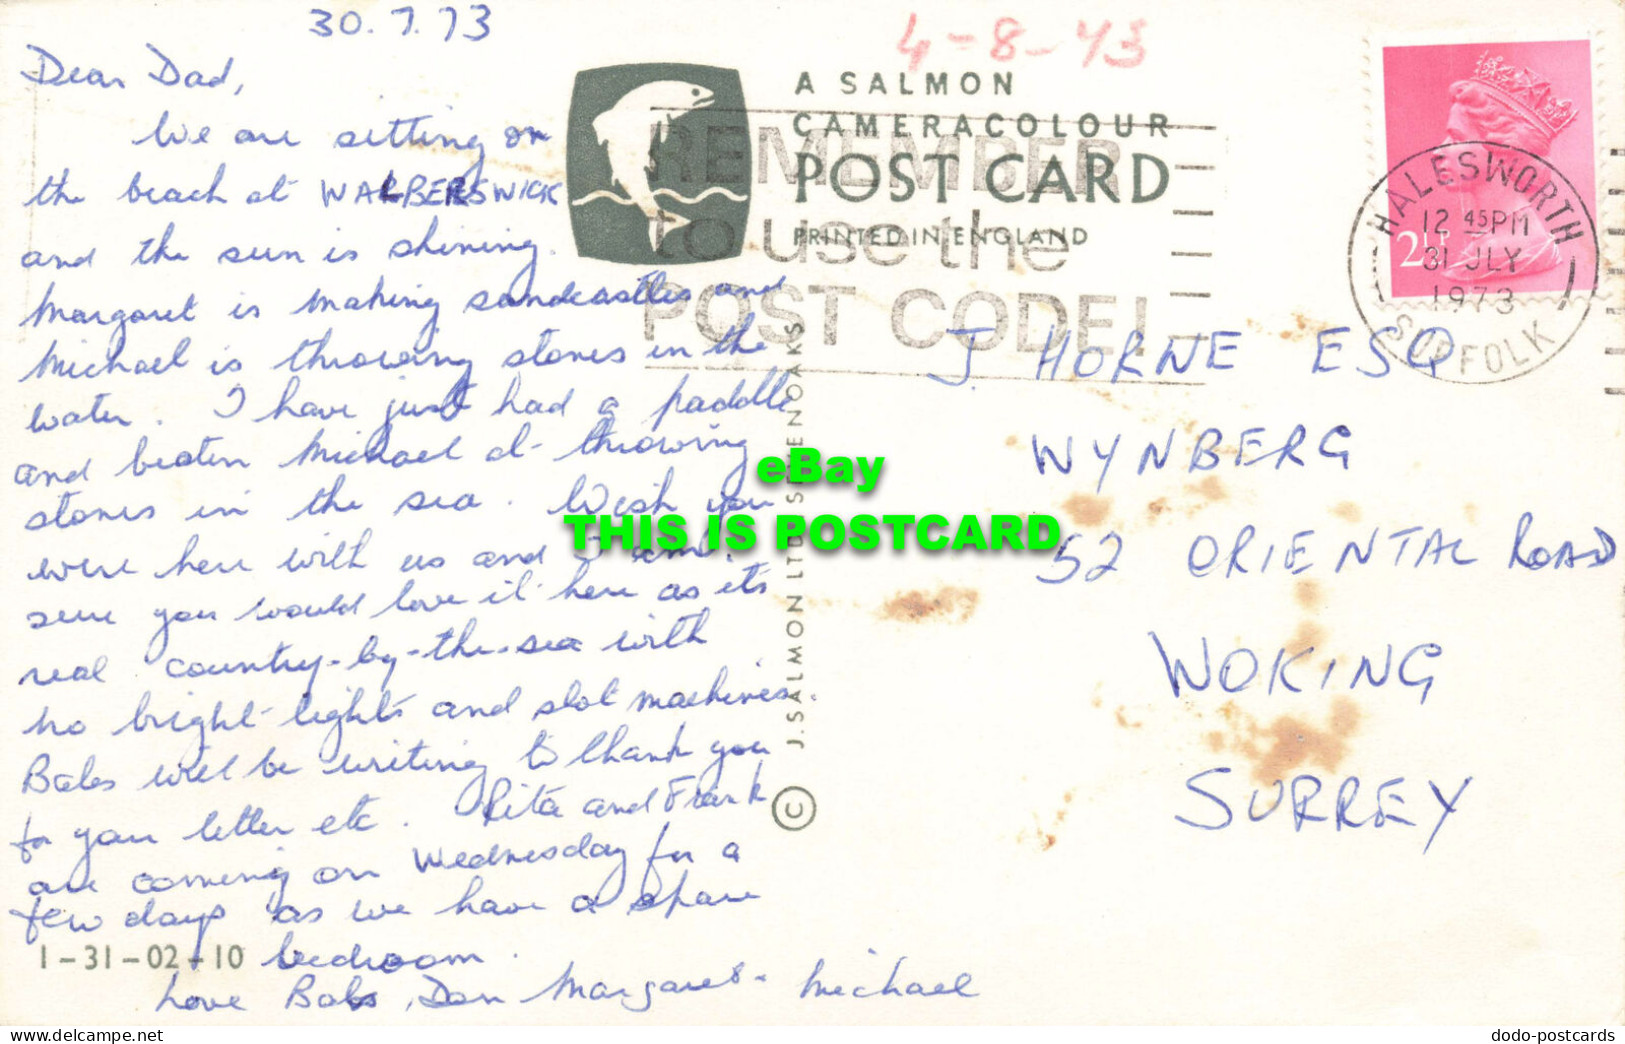 30.7.73
4-8-73
Dear Dad,
We are sitting on
the beach at WALBERSWICK
and the sun is shining.
Margaret is making sandcastles and
Michael is throwing stones in the
water. I have just had a paddle
and beaten Michael at throwing
stones in the sea. Wish you
were here with us and I am
sure you would love it here as its
real country-by-the-sea with
no bright lights and slot machines.
Babs will be writing to thank you
for your letter etc. Rita and Frank
are coming on Wednesday for a
few days as we have a spare
bedroom.
Love Babs, Don Margaret - Michael
1-31-02-10
A SALMON
CAMERACOLOUR
POST CARD
PRINTED IN ENGLAND
REMEMBER
to use the
POST CODE!
© J. SALMON LTD SEVENOAKS
2½P
HALESWORTH
12 45PM
31 JLY
1973
SUFFOLK
J. HORNE ESQ
WYNBERG
52 ORIENTAL ROAD
WOKING
SURREY
eBay
THIS IS POSTCARD
1-31-02-10
dodo-postcards